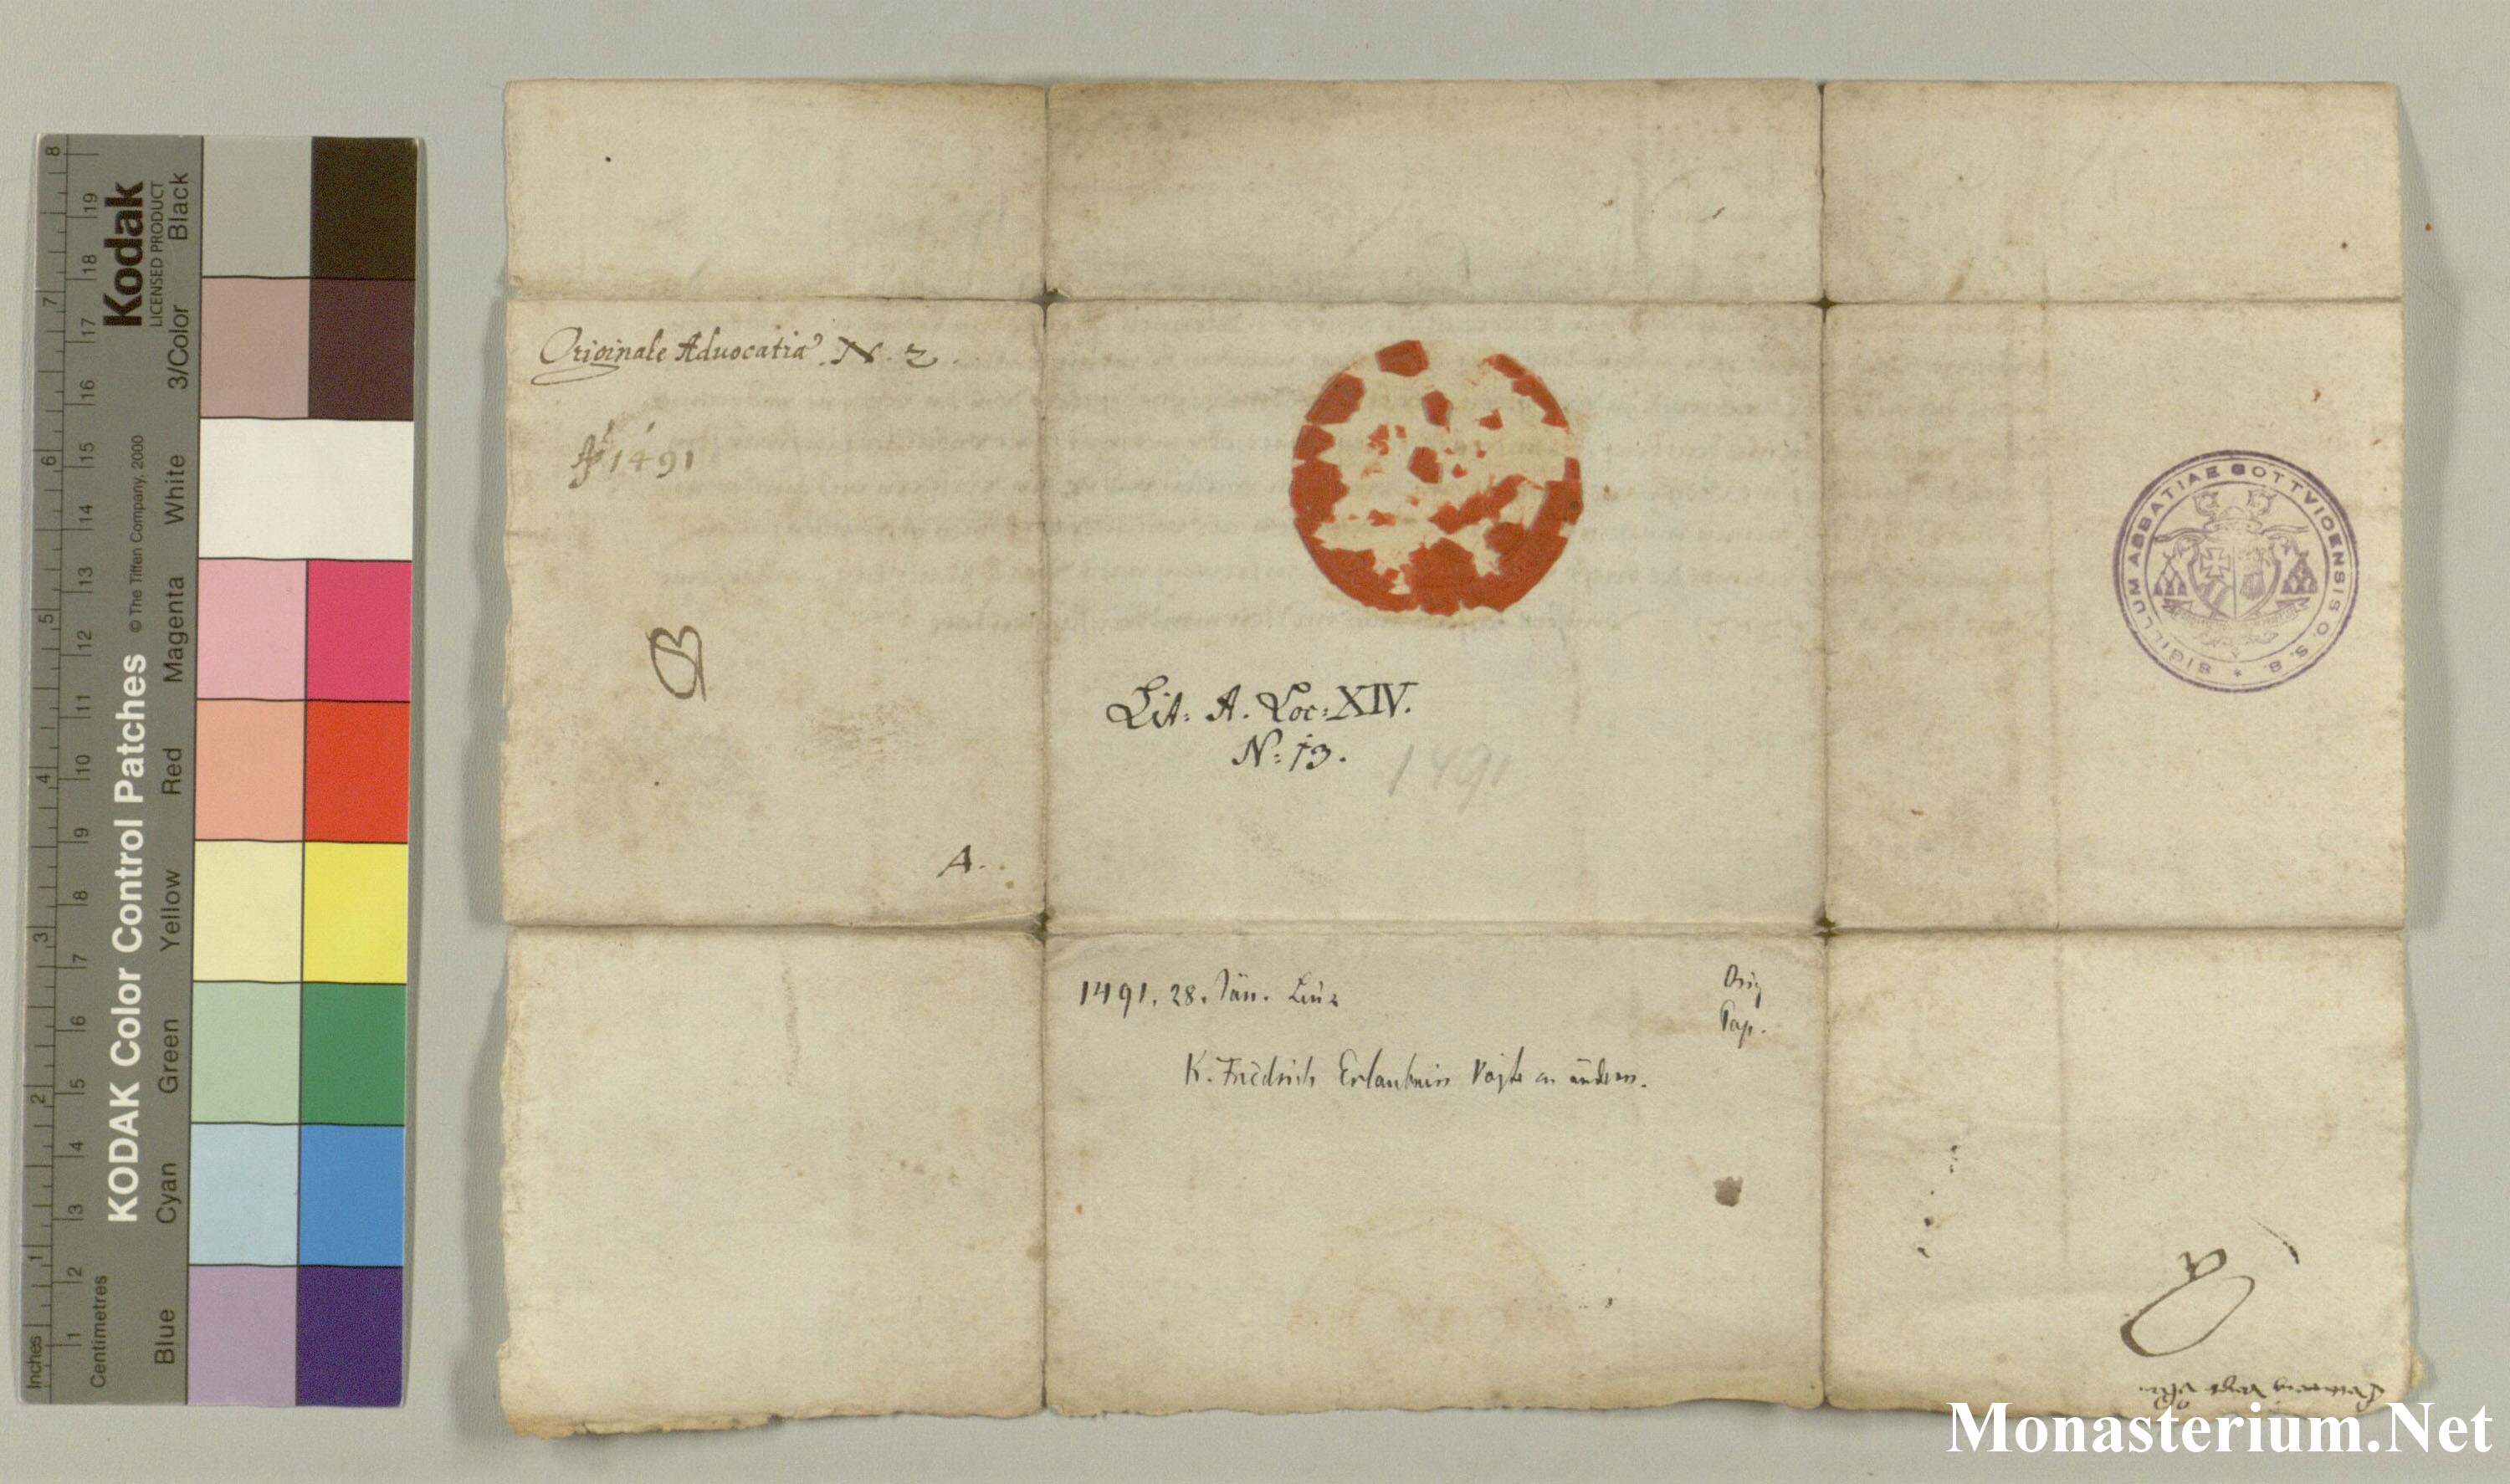 Originale Aduocatia N. 2.
Aº 1491
B
A.
Lit: A. Loc: XIV.
N: 13.
1491
SIGILLUM ABBATIAE GOTTVICENSIS O. S. B.
1491. 28. Jän. Linz
Orig
Pap.
K. Friedrich Erlaubniss Vogte zu ändern.
Kodak
LICENSED PRODUCT
KODAK Color Control Patches
© The Tiffen Company, 2000
Blue Cyan Green Yellow Red Magenta White 3/Color Black
Inches 1 2 3 4 5 6 7 8
Centimetres 1 2 3 4 5 6 7 8 9 10 11 12 13 14 15 16 17 18 19
Monasterium.Net